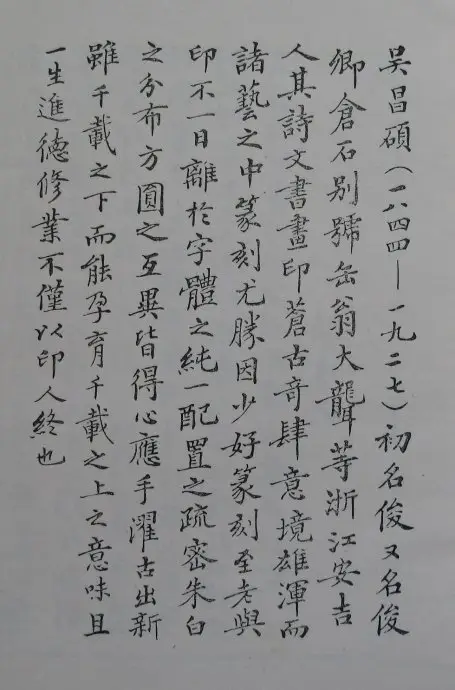 吴昌碩(一八四四—一九二七)初名俊又名俊
卿倉石別號缶翁大聾等浙江安吉
人其詩文書畫印蒼古奇肆意境雄渾而
諸藝之中篆刻尤勝因少好篆刻至老與
印不一日離於字體之純一配置之疏密朱白
之分布方圓之互異皆得心應手濯古出新
雖千載之下而能孕育千載之上之意味且
一生進德修業不僅以印人終也